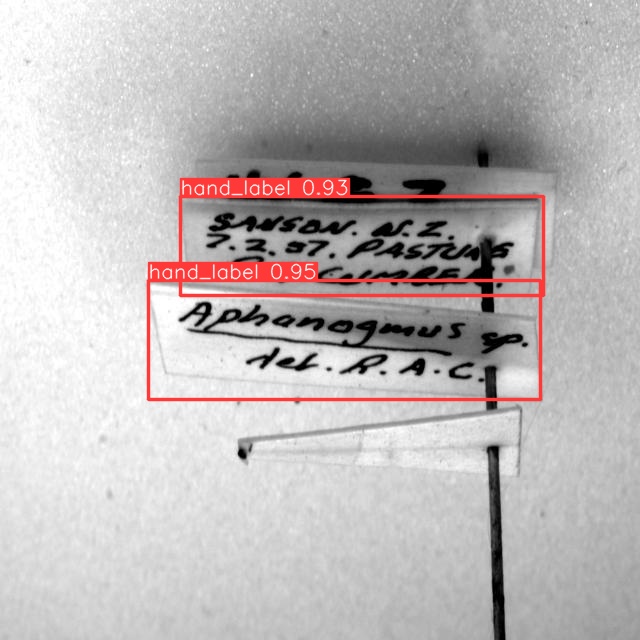 hand_label 0.93
SANSON. N.Z.
7.2.57. PASTURES
CUMBER.
hand_label 0.95
Aphanogmus sp.
det. R.A.C.